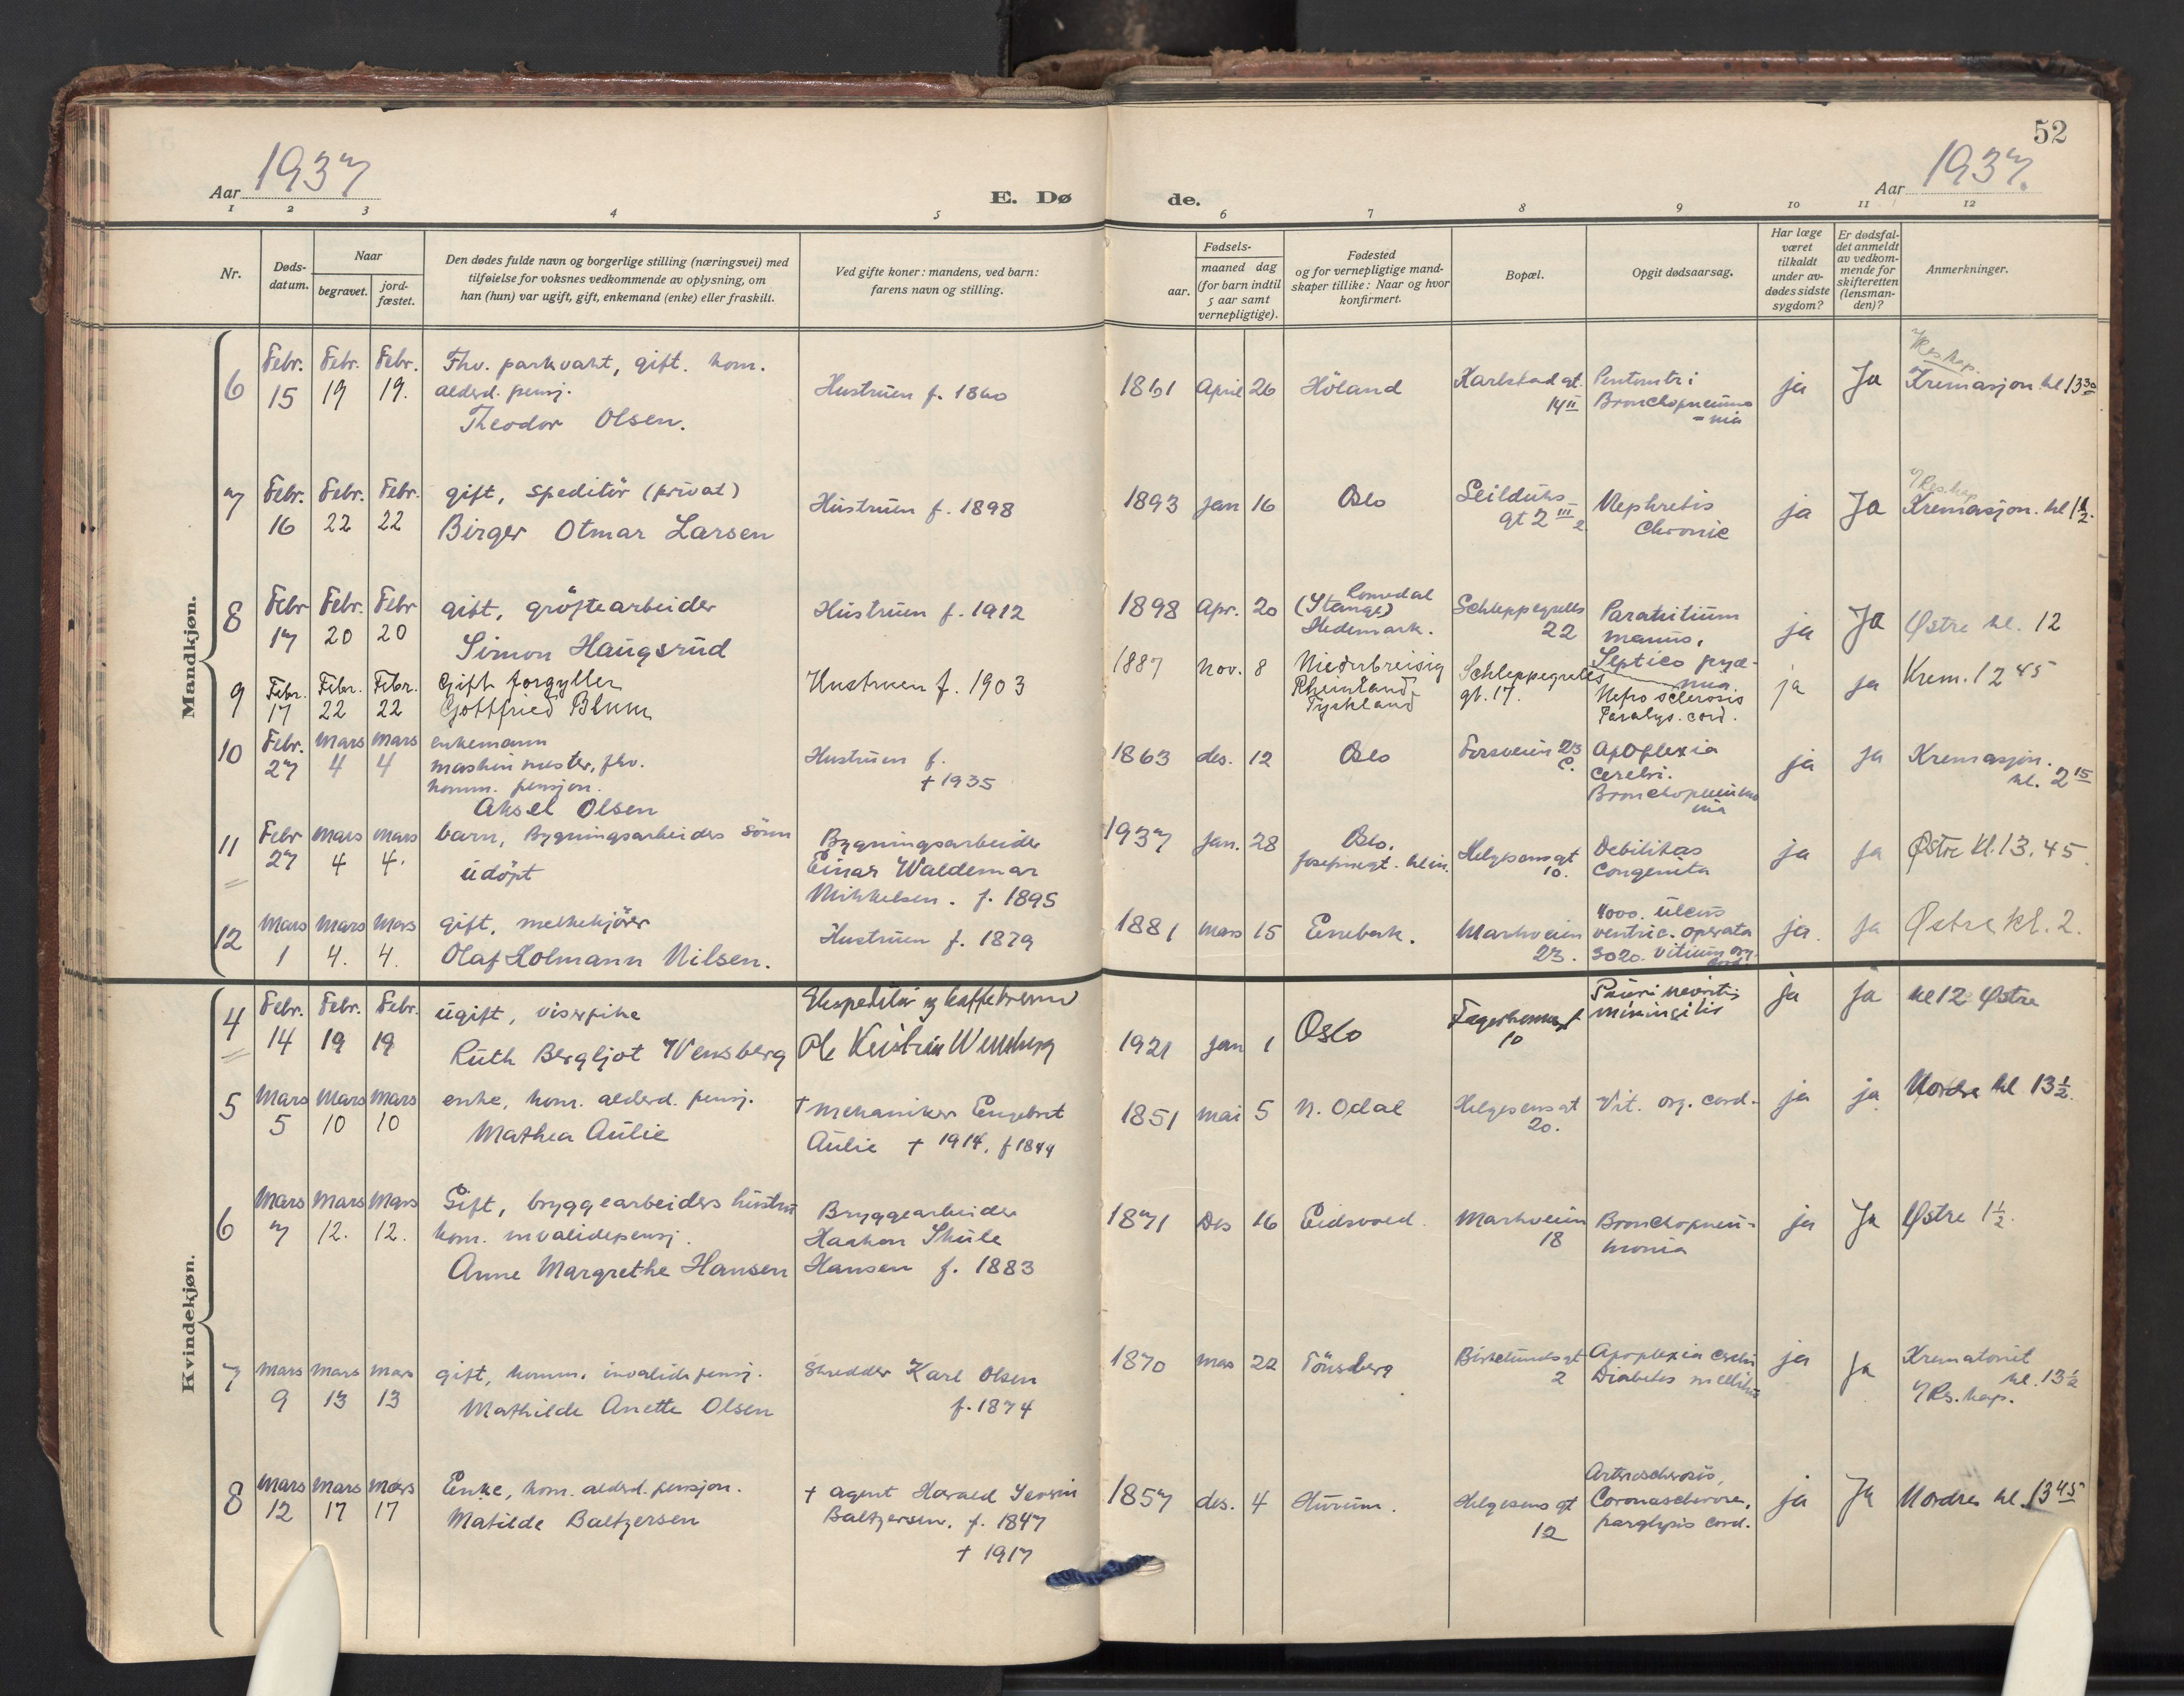 52
Aar 1937
E. Dø
de.
Aar 1937.
1 2 3 4 5 6 7 8 9 10 11 12
Nr.
Døds-
datum.
Naar
begravet.
jord-
fæstet.
Den dødes fulde navn og borgerlige stilling (næringsvei) med
tilføielse for voksnes vedkommende av oplysning, om
han (hun) var ugift, gift, enkemand (enke) eller fraskilt.
Ved gifte koner: mandens, ved barn:
farens navn og stilling.
Fødsels-
aar.
maaned dag
(for barn indtil
5 aar samt
vernepligtige).
Fødested
og for vernepligtige mand-
skaper tillike: Naar og hvor
konfirmert.
Bopæl.
Opgit dødsaarsag.
Har læge
været
tilkaldt
under av-
dødes sidste
sygdom?
Er dødsfal-
det anmeldt
av vedkom-
mende for
skifteretten
(lensman-
den)?
Anmerkninger.
Mandkjøn.
6
Febr. 15
Febr. 19
Febr. 19.
Fhv. parkvakt, gift. kom.
alderd. pensj.
Theodor Olsen.
Hustruen f. 1860
1861 April 26
Höland
Karlstad gt.
14 II
Bronchopneumo
=nia
ja
Ja
Res kap.
Kremasjon kl 13 30
7
Febr. 16
Febr. 22
Febr. 22
gift, speditör (privat)
Birger Otmar Larsen
Hustruen f. 1898
1893 jan 16
Oslo
Seilduks-
gt 2 III 2
Nephretis
Chronic
ja
Ja
Res. kap
Kremasjon. kl 1 1/2.
8
Febr 17
Febr. 20
Febr 20
gift, gröftearbeider
Simon Haugsrud
Hustruen f. 1912
1898 Apr. 20
Romedal
(Stange)
Hedemark.
Schleppegrells
22
manus,
Septico pyæ-
mia.
ja
Ja
Østre kl. 12
9
Febr. 17
Febr. 22
Febr. 22
Gift forgyller
Gottfried Blum
Hustruen f. 1903
1887 nov. 8
Niederbreisig
Rheinland
Tyskland
Schleppegrells
gt. 17.
Nefro sclerosis
Paralys. cord.
ja
ja
Krem. 12 45
10
Febr. 27
Mars 4
Mars 4
enkemann
maskinmester, fhv.
komm. pensjon.
Aksel Olsen
Hustruen f.
† 1935
1863 des. 12
Oslo
Forsveien 23
C.
Apoplexia
cerebri.
Bronchopneumo
nia
ja
ja
Kremasjon.
kl. 2 15
11
Febr 27
Mars 4
Mars 4.
barn, Bygningsarbeides sönn
udöpt
Bygningsarbeider
Einar Waldemar
Mikkelsen. f. 1895
1937 jan. 28
Oslo.
Josefinegt. klin.
Helgesensgt
10.
Debilitas
Congenita
ja
ja
Østre kl. 13.45.
12
Mars 1
Mars 4.
Mars 4.
gift, melkekjörer
Olaf Holmann Nilsen.
Hustruen f. 1879
1881 mars 15
Enebak.
Markveien
23.
4000. ulcus
ventric. operata
3020. Vitium org.
cord.
ja.
ja
Østre kl. 2.
Kvindekjøn.
4
Febr. 14
Febr. 19
Febr. 19
ugift, viserpike
Ruth Bergljot Wensberg
Ekspeditør
Ole Kristian Wensberg
1921 jan 1
Oslo
10
ja
ja
kl 12 Østre
5
Mars 5
Mars 10
Mars 10
enke, kom. alderd. pensj.
Mathea Aulie
† mekaniker Engebret
Aulie † 1914. f 1844
1851 mai 5
N. Odal
Helgesensgt
20.
Vit. org. cord.
ja
ja
Nordre kl 13 1/2.
6
Mars 7
Mars 12.
Mars 12.
Gift, bryggearbeiders hustru
kom. invalidepensj.
Anne Margrethe Hansen
Bryggearbeider
Haakon Skule
Hansen f. 1883
1871 Des 16
Eidsvold.
Markveien
18
Bronchopneu-
monia
ja
Ja
Østre 1 1/2.
7
Mars 9
Mars 13
Mars 13
gift, komm. invalide pensj.
Mathilde Anette Olsen
Skredder Karl Olsen
f. 1874
1870 mas 22
Tönsberg
Birkelundsgt
2
Apoplexia cerebri
Diabetes mellitus
ja
ja
Krematoriet
kl. 13 1/2
Res. kap.
8
Mars 12
Mars 17
Mars 17
Enke, kom. alderd. pensjon.
Matilde Baltzersen
† agent Harald
Baltzersen. f. 1847
† 1917
1857 des. 4
Hurum.
Helgesens gt
12
Arteriosclerosis,
paralysis cord.
ja
Ja
Nordre kl. 13 45